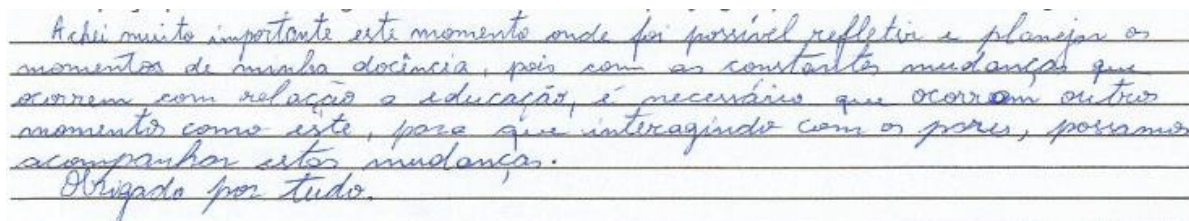 Achei muito importante este momento onde foi possível refletir e planejar os
momentos de minha docência, pois com as constantes mudanças que
ocorrem com relação a educação, é necessário que ocorram outros
momentos como este, para que interagindo com os pares, possamos
acompanhar estas mudanças.
Obrigado por tudo.